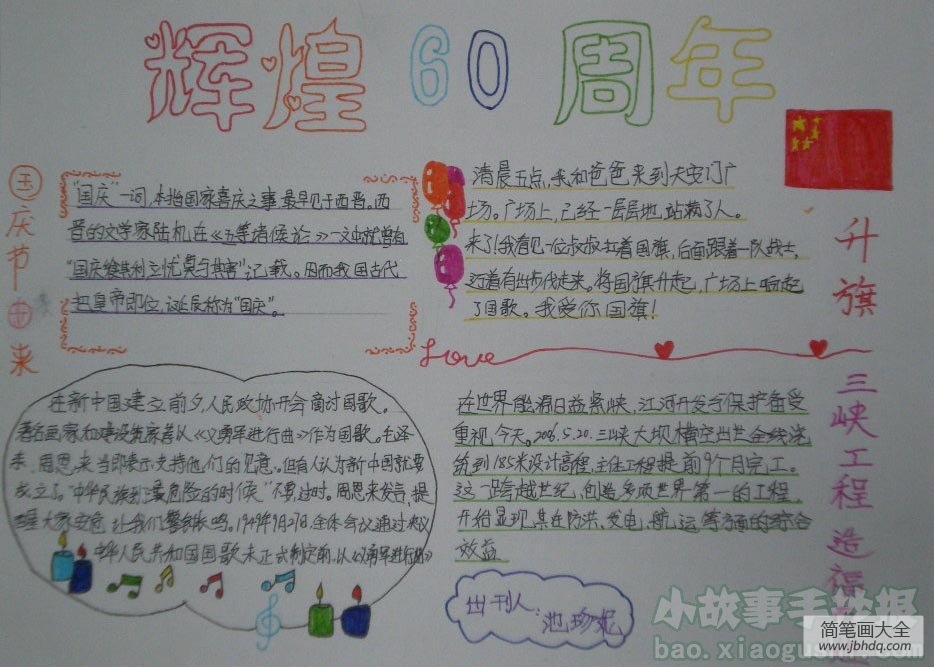 辉煌60周年
国庆节由来
"国庆"一词，本指国家喜庆之事，最早见于西晋。西
晋的文学家陆机在《五等诸侯论》一文中就曾有
"国庆独飨其利，主忧莫与其害"记载。因而我国古代
把皇帝即位、诞辰称为"国庆"。
清晨五点，我和爸爸来到天安门广
场。广场上，已经一层层地站满了人。
来了！我看见一位叔叔扛着国旗，后面跟着一队战士，
迈着有步伐走来。将国旗升起，广场上响起
了国歌。我爱你国旗！
升旗
Love
在新中国建立前夕，人民政协开会商讨国歌。
著名画家和建设筑家善从《义勇军进行曲》作为国歌。毛泽
东、周恩来当即表示支持他们的见意。但有人认为新中国就要
成立了。"中华民族到了最危险的时候"不要过时。周恩来发言，提
大家安危，让我们警钟长鸣。1949年9月27日，全体会议通过决议
中华人民共和国国歌未正式制定前，以《义勇军进行曲》
在世界能源日益紧峡，江河开发与保护备受
重视今天。2006.5.20.三峡大坝横空出世全线浇
统到185米设计高程，主体工程提前9个月完工。
这一跨越世纪，创造多项世界第一的工程，
开始显现其在防洪、发电、航运等方面的综合
效益
三峡工程造福
出刊人：池珍妮
小故事手抄报
bao.xiaogushi.com
简笔画大全
www.jbhdq.com